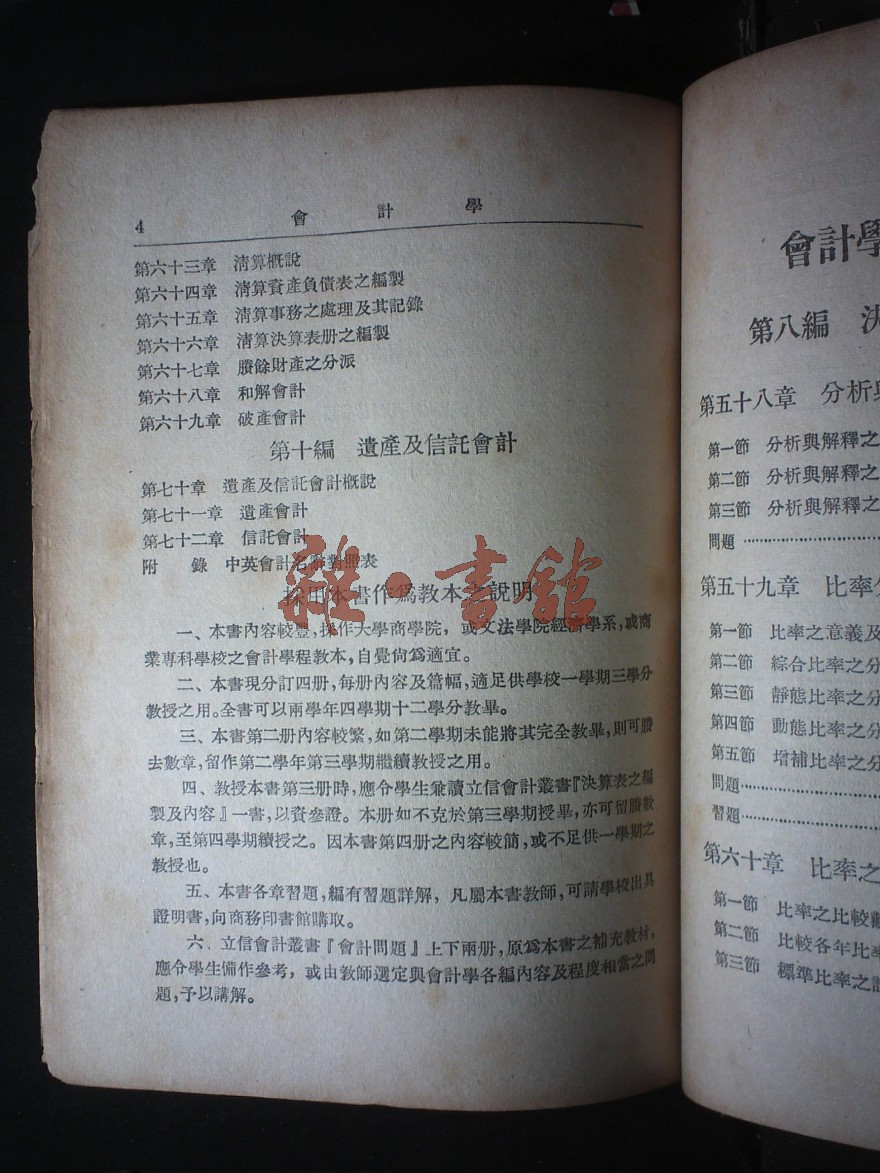 4 會計學
第六十三章 淸算概說
第六十四章 淸算資產負債表之編製
第六十五章 淸算事務之處理及其記錄
第六十六章 淸算決算表册之編製
第六十七章 賸餘財產之分派
第六十八章 和解會計
第六十九章 破產會計
第十編 遺產及信託會計
第七十章 遺產及信託會計概說
第七十一章 遺產會計
第七十二章 信託會計
附錄 中英會計名辭對照表
採用本書作爲敎本之說明
雜·書館
一、本書內容較豐，採作大學商學院，或文法學院經濟學系，或商
業專科學校之會計學程敎本，自覺尙爲適宜。
二、本書現分訂四册，每册內容及篇幅，適足供學校一學期三學分
敎授之用。全書可以兩學年四學期十二學分敎畢。
三、本書第二册內容較繁，如第二學期未能將其完全敎畢，則可賸
去數章，留作第二學年第三學期繼續敎授之用。
四、敎授本書第三册時，應令學生兼讀立信會計叢書『決算表之編
製及內容』一書，以資參證。本册如不克於第三學期授畢，亦可留賸數
章，至第四學期續授之。因本書第四册之內容較簡，或不足供一學期之
敎授也。
五、本書各章習題，編有習題詳解，凡屬本書敎師，可請學校出具
證明書，向商務印書館購取。
六、立信會計叢書『會計問題』上下兩册，原爲本書之補充敎材，
應令學生備作參考，或由敎師選定與會計學各編內容及程度相當之問
題，予以講解。
會計學
第八編 決
第五十八章 分析與
第一節 分析與解釋之
第二節 分析與解釋之
第三節 分析與解釋之
問題
第五十九章 比率分
第一節 比率之意義及
第二節 綜合比率之分
第三節 靜態比率之分
第四節 動態比率之分
第五節 增補比率之分
問題
習題
第六十章 比率之
第一節 比率之比較觀
第二節 比較各年比率
第三節 標準比率之